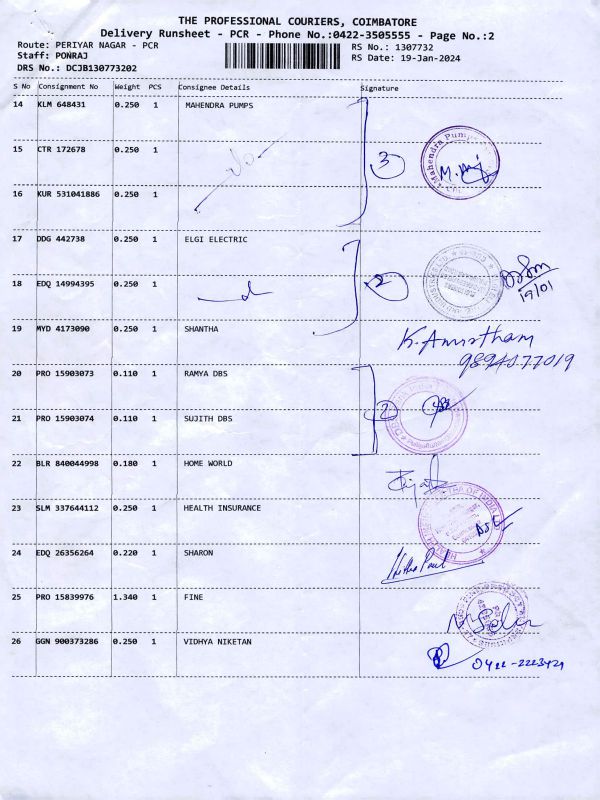 THE PROFESSIONAL COURIERS, COIMBATORE
Delivery Runsheet - PCR - Phone No.:0422-3505555 - Page No.:2
Route: PERIYAR NAGAR - PCR
RS No.: 1307732
Staff: PONRAJ
RS Date: 19-Jan-2024
DRS No.: DCJB130773202
S No Consignment No Weight PCS Consignee Details Signature
14 KLM 648431 0.250 1 MAHENDRA PUMPS
15 CTR 172678 0.250 1
3
Mahendra Pumps
16 KUR 531041886 0.250 1
17 DDG 442738 0.250 1 ELGI ELECTRIC
18 EDQ 14994395 0.250 1
2
19/01
19 MYD 4173090 0.250 1 SHANTHA
K. Amirtham
20 PRO 15903073 0.110 1 RAMYA DBS
21 PRO 15903074 0.110 1 SUJITH DBS
2
22 BLR 840044998 0.180 1 HOME WORLD
23 SLM 337644112 0.250 1 HEALTH INSURANCE
24 EDQ 26356264 0.220 1 SHARON
25 PRO 15839976 1.340 1 FINE
26 GGN 900373286 0.250 1 VIDHYA NIKETAN
0422-2223421